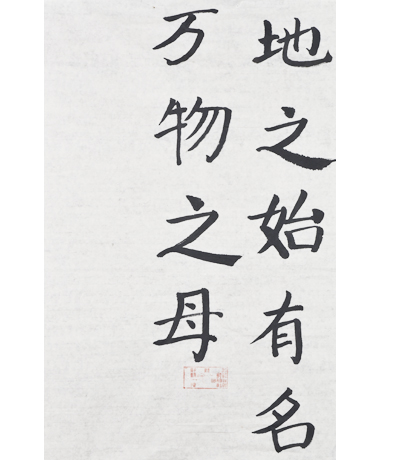 地之始有名
万物之母